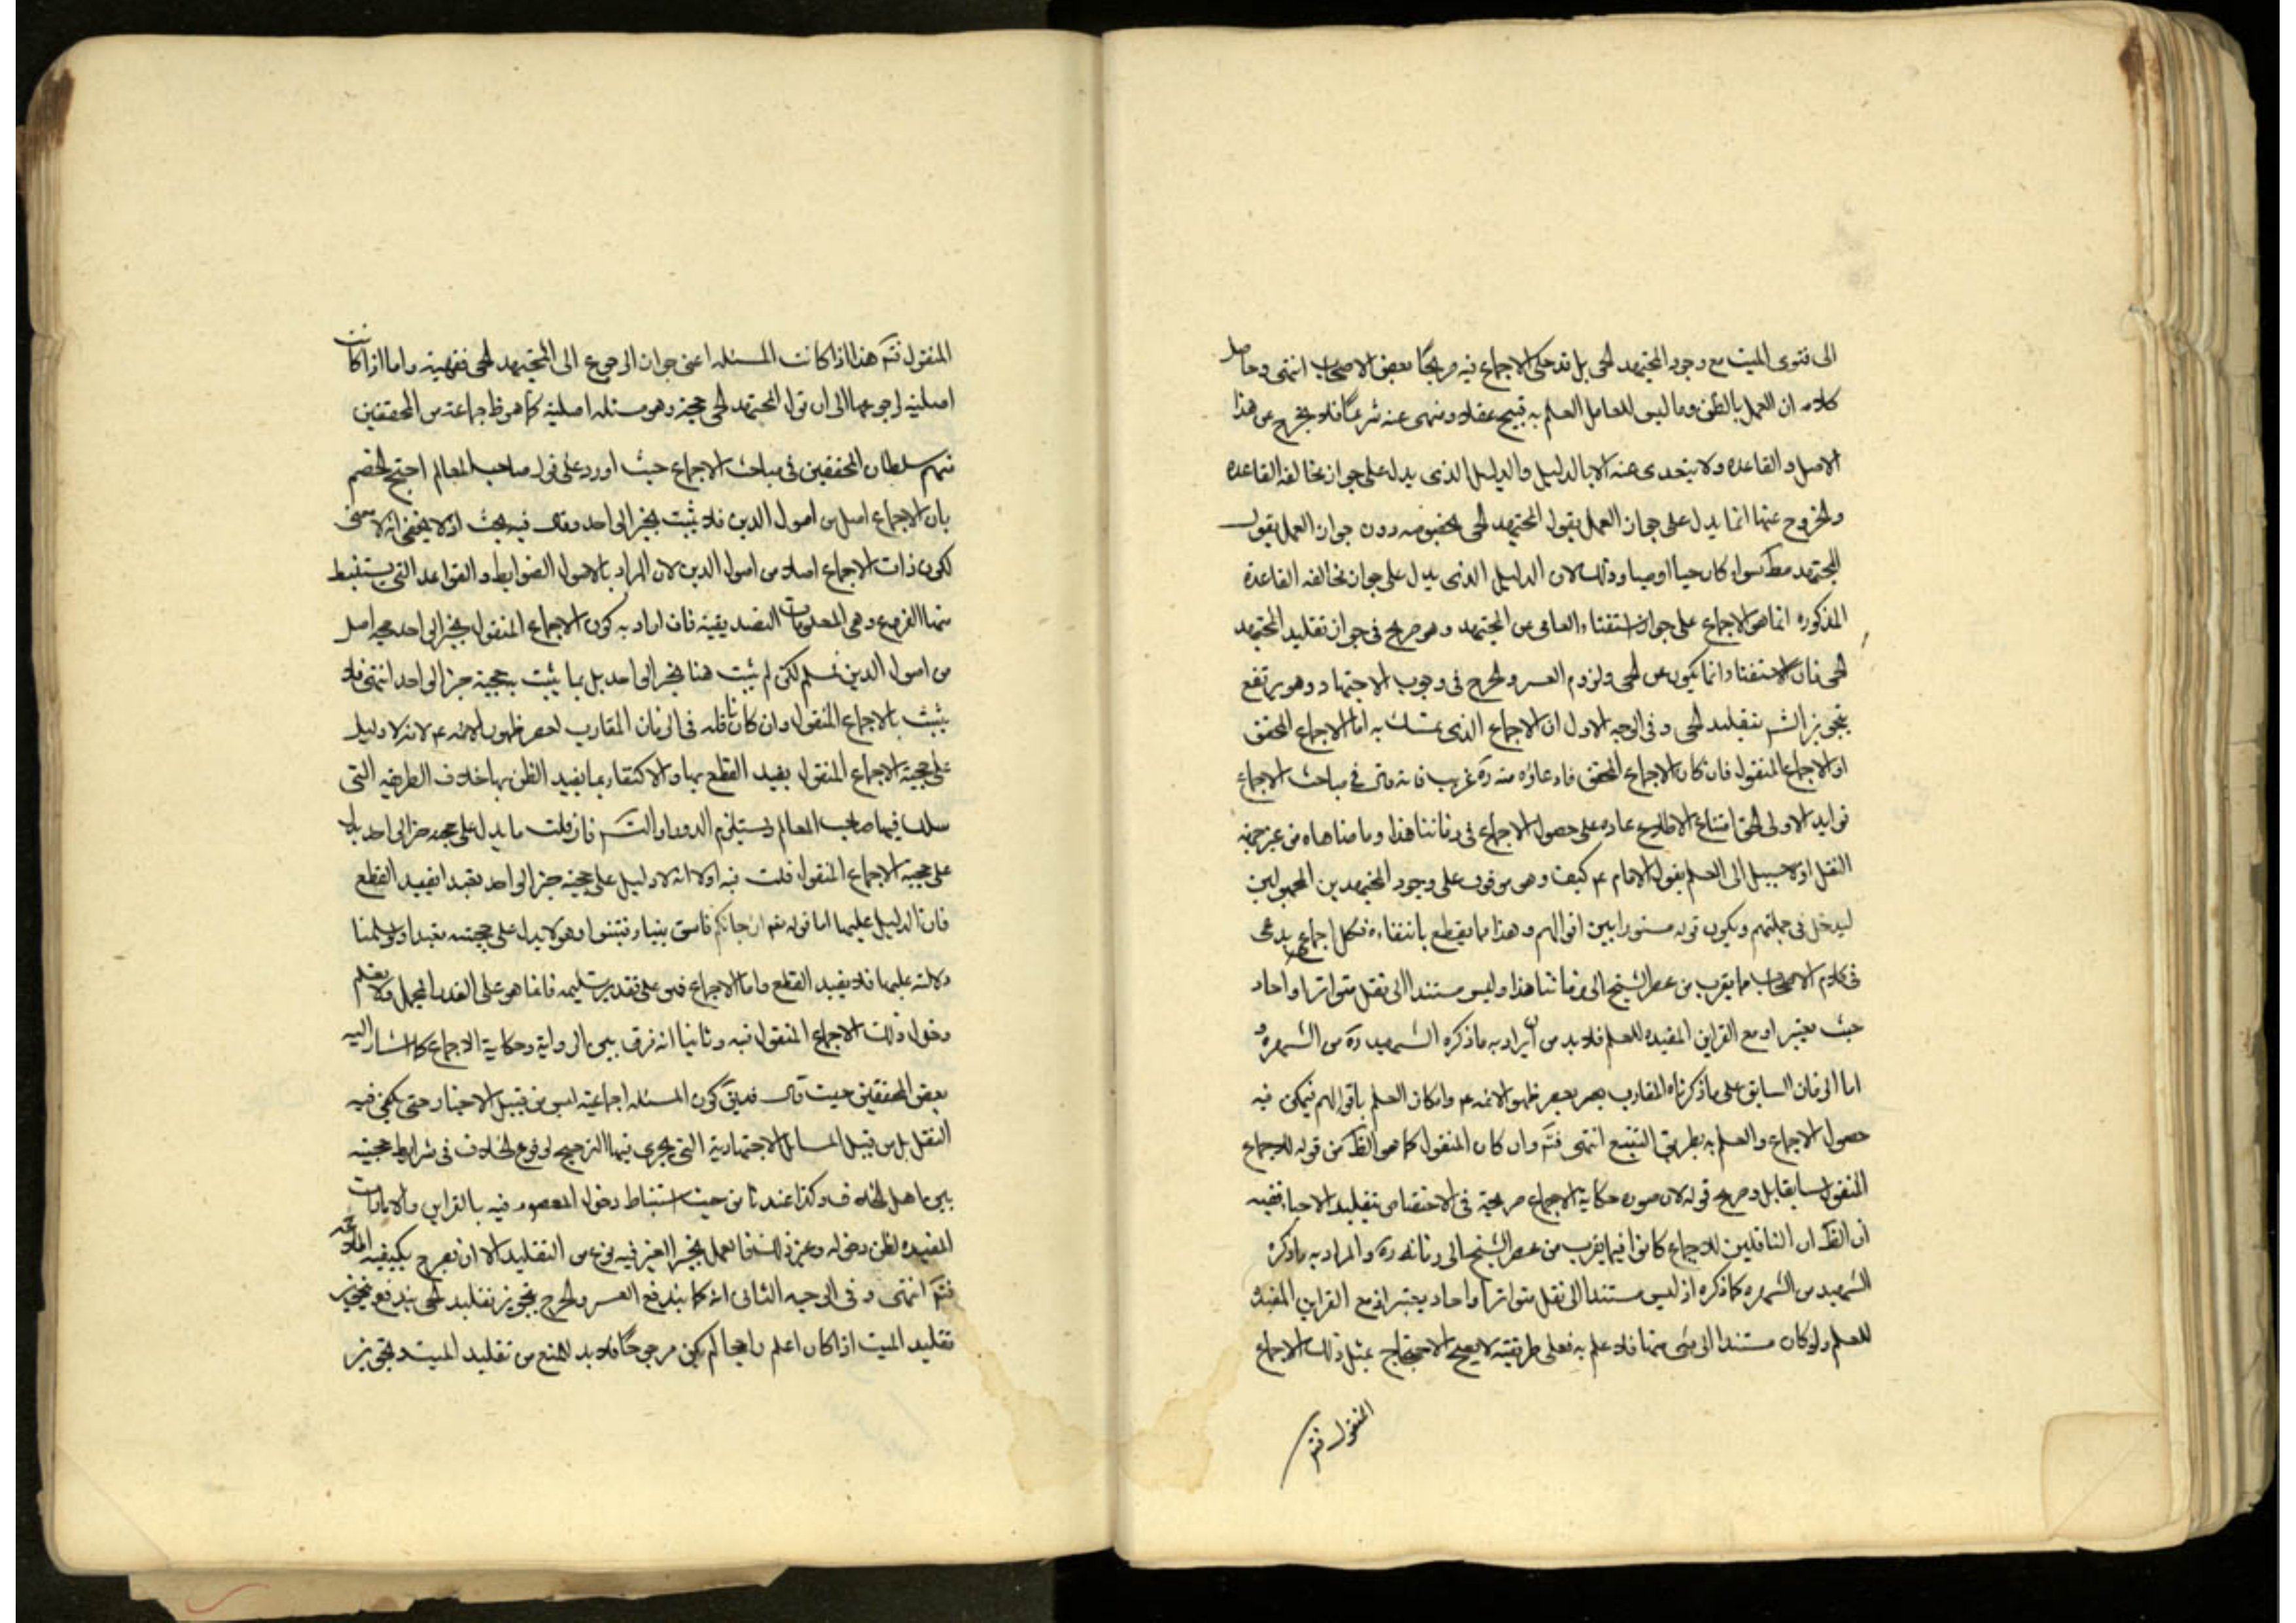 الى فتوى الميت مع وجود المجتهد الحى بل قد حكى الاجماع فيه صريحًا بعض الاصحاب انتهى وحاصل
كلامه ان العمل بالظن وما ليس للعامل العلم به قبيح عقلا ومنهى عنه شرعًا فلا يخرج عن هذا
الاصل والقاعده ولا يتعدى عنه الا بالدليل والدليل الذى يدل على جواز مخالفه القاعده
والخروج عنها انما يدل على جواز العمل بقول المجتهد الحى بخصوصه دون جواز العمل بقول
المجتهد مط سواء كان حيا او ميتا وذلك لان الدليل الذى يدل على جواز مخالفه القاعدة
المذكوره انما هو الاجماع على جواز استفتاء العامى من المجتهد وهو صريح فى جواز تقليد المجتهد
الحى فان الاستفتاء انما يكون عن الحى ولزوم العسر والحرج فى وجوب الاجتهاد وهو يرتفع
بتجويز تقليد الحى وفى الوجه الاول ان الاجماع الذى تمسك به اما الاجماع المحقق
او الاجماع المنقول فان كان الاجماع المحقق فادعاؤه منه ره غريب فانه قال فى مباحث الاجماع
فوايد الاولى الحق امتناع الاطلاع عاده على حصول الاجماع فى زماننا هذا وما ضاهاه من غير جهة
النقل اذ لا سبيل الى العلم بقول الامام ع كيف وهو موقوف على وجود المجتهدين المجهولين
ليدخل فى جملتهم ويكون قوله مستورا بين اقوالهم وهذا مما يقطع بانتفاءه فكل اجماع يدعى
فى كلام الاصحاب مما يقرب من عصر الشيخ الى زماننا هذا وليس مستندا الى نقل متواتر او احاد
حيث يعتبر او مع القراين المفيده للعلم فلا بد من ان يراد به ما ذكره الشهيد ره من الشهره و
اما الزمان السابق على ما ذكرناه المقارب لعصر ظهور الائمه ع وامكان العلم باقوالهم فيمكن فيه
حصول الاجماع والعلم به بطريق التتبع انتهى فتم وان كان المنقول كما هو الظ من قوله للاجماع
المنقول سابقا بل وصريح قوله لان صوره حكاية الاجماع صريحة فى الاختصاص بتقليد الاحياء ففيه
ان الظ ان الناقلين للاجماع كانوا فيما يقرب من عصر الشيخ الى زمانه ره والمراد به ما ذكره
الشهيد من الشهره كما ذكره اذ ليس مستندا الى نقل متواتر او احاد يعتبر او مع القراين المفيده
للعلم ولو كان مستندا الى شى منها فلا علم به فعلى طريقته لا يصح الاحتجاج بمثل ذلك الاجماع
المنقول فتم
المنقول فتم هذا اذا كانت المسئله اعنى جواز الرجوع الى المجتهد الحى فقهية واما اذا كانت
اصلية لرجوعها الى ان قول المجتهد الحى حجة وهو مسئله اصلية كما هو ظ جماعة من المحققين
منهم سلطان المحققين فى مباحث الاجماع حيث اورد على قول صاحب المعالم احتج الخصم
بان الاجماع اصل من اصول الدين فلا يثبت بخبر الواحد وقال فيه بحث اذ لا يخفى انه لا معنى
لكون ذات الاجماع اصلا من اصول الدين لان المراد بالاصول الضوابط والقواعد التى يستنبط
منها الفروع وهى المعلومات التصديقية فان اراد به كون الاجماع المنقول بخبر الواحد حجه اصل
من اصول الدين فمسلم لكن لم يثبت هنا بخبر الواحد بل بما يثبت به حجية خبر الواحد انتهى فلا
يثبت بالاجماع المنقول وان كان ناقله فى الزمان المقارب لعصر ظهور الائمه ع لانه لا دليل
على حجية الاجماع المنقول يفيد القطع بها والاكتفاء بما يفيد الظن بها خلاف الطريقه التى
سلك فيها صاحب المعالم ويستلزم الدور او التسم فان قلت ما يدل على حجيه خبر الواحد يدل
على حجيه الاجماع المنقول قلت فيه اولا انه لا دليل على حجية خبر الواحد تعبدا يفيد القطع
فان الدليل عليها اما قوله تعم ان جائكم فاسق بنباء فتبينوا وهو لا يدل على حجيته تعبدا ولو سلمنا
دلالته عليها فلا يفيد القطع واما الاجماع فهو على تقدير تسليمه فانما هو على القدر المجمل ولا يعلم
دخول ذلك الاجماع المنقول فيه وثانيا انه فرق بين الرواية وحكاية الاجماع كما اشار اليه
بعض المحققين حيث قال فيكون المسئله اجماعية ليس من قبيل الاخبار حتى يكفى فيه
النقل بل من قبيل المسائل الاجتهادية التى يجرى فيها الترجيح لوقوع الخلاف فى شرايط حجيته
بين اهل الخلاف وكذا عندنا من حيث استنباط دخول المعصوم فيه بالقراين والامارات
المفيده لظن دخوله وغير ذلك فالعمل بخبر الغير فيه نوع من التقليد الا ان يصرح بكيفيه اطلاعه
فتم انتهى وفى الوجه الثانى انه كما يندفع العسر والحرج بتجويز تقليد الحى يندفع بتجويز
تقليد الميت اذا كان اعلم راجحا لم يكن مرجوحًا فلا بد للمنع من تقليد الميت وتجويز